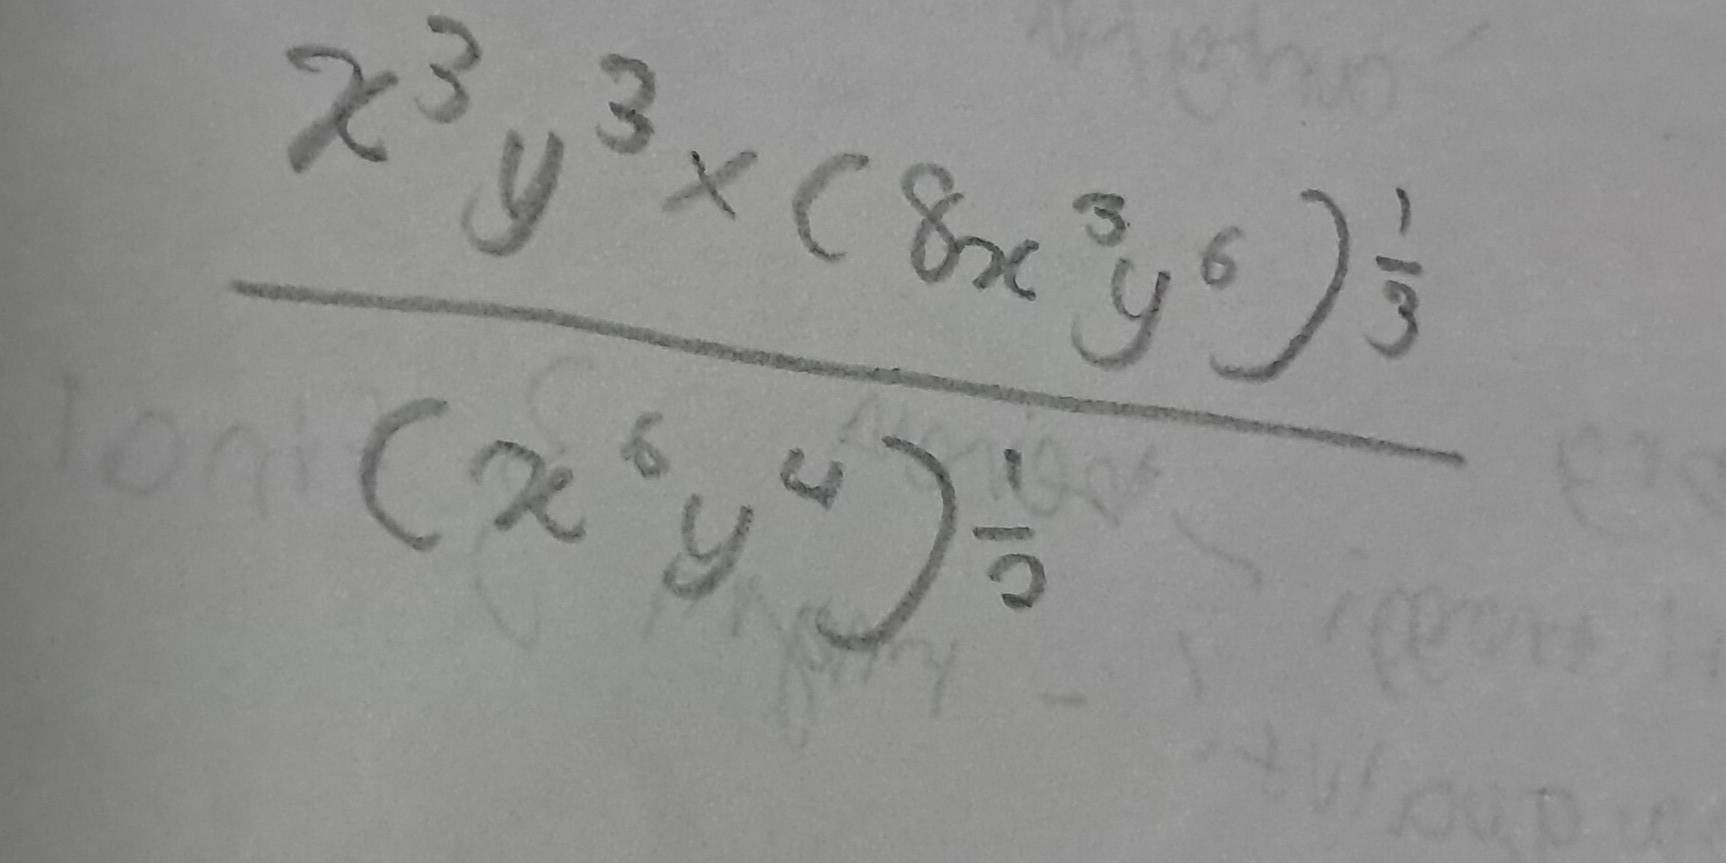 x³y³ × (8x³y⁶)^(1/3)
(x⁶y⁴)^(1/2)